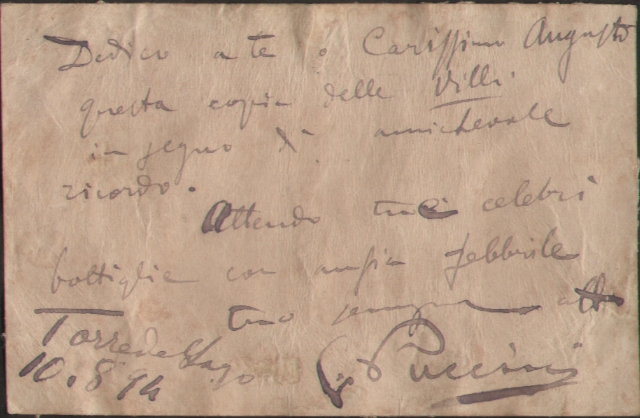 Dedico a te o Carissimo Augusto
questa copia delle Villi
in segno d' amichevole
ricordo.
Attendo tue celebri
bottiglie con ansia febbrile
tuo sempre aff
Torre del Lago G Puccini
10.8 94